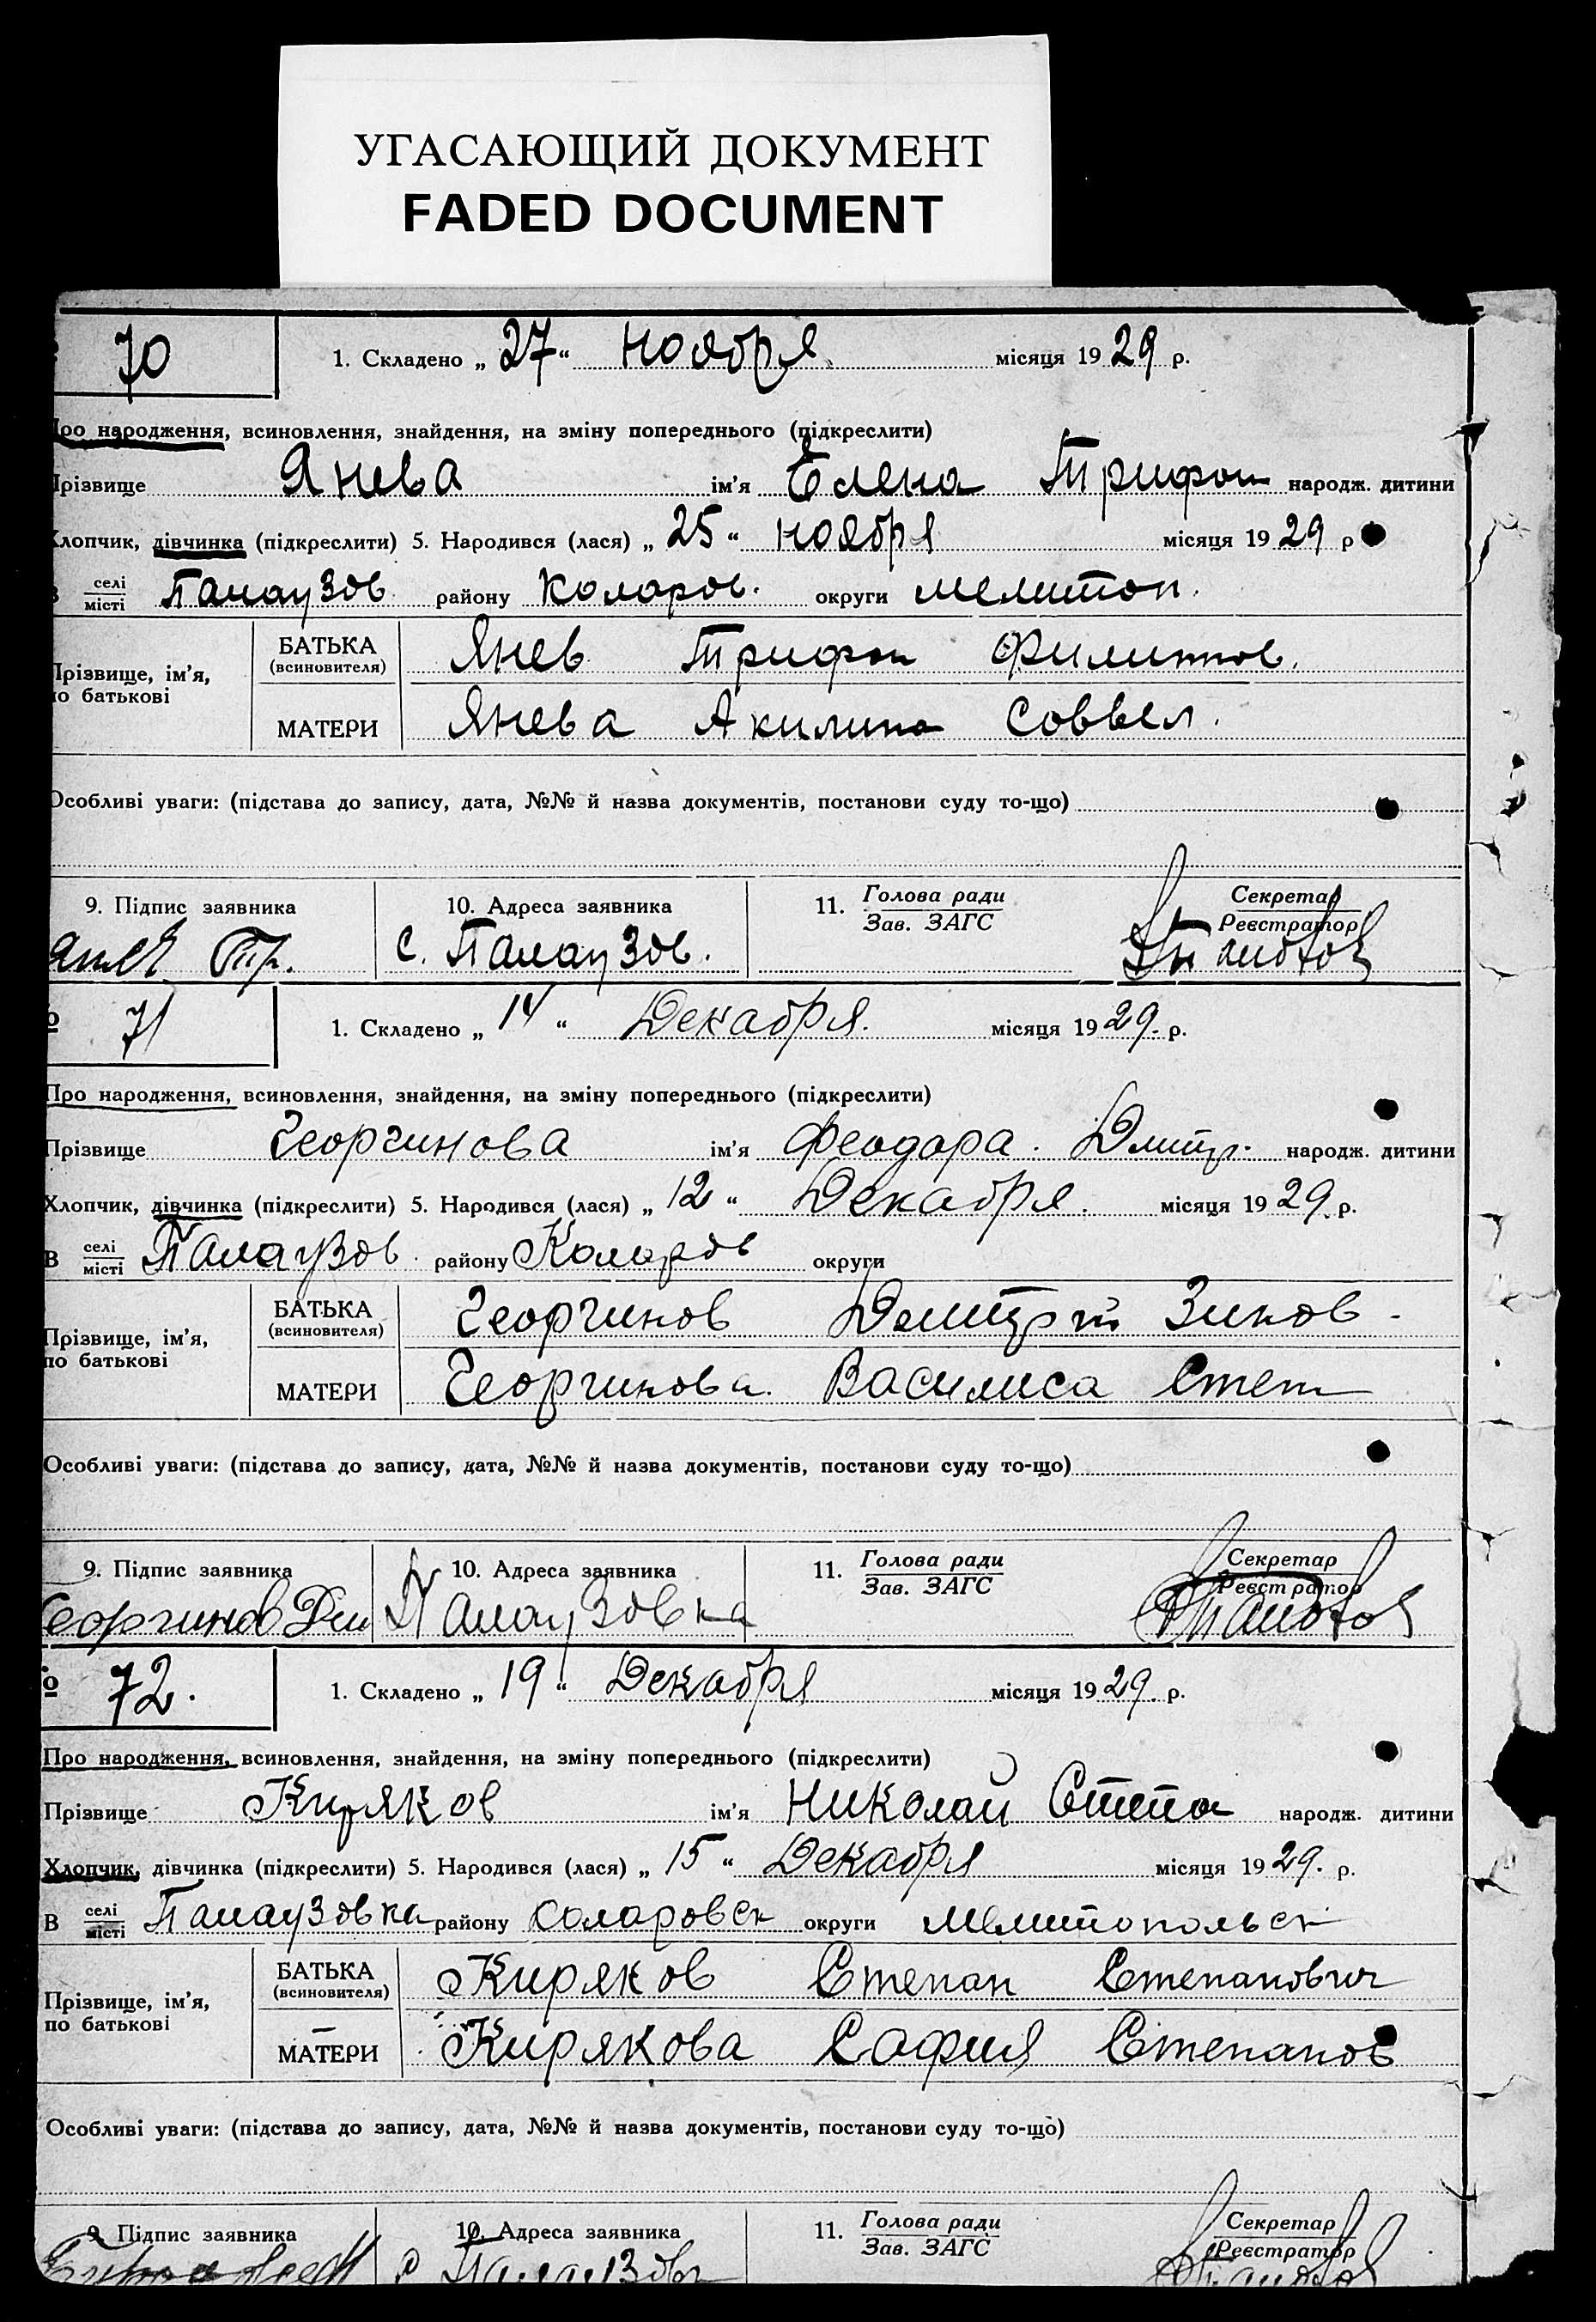 УГАСАЮЩИЙ ДОКУМЕНТ
FADED DOCUMENT
70 1. Складено „ 27 “ ноября місяця 1929 р.
Про народження, всиновлення, знайдення, на зміну попереднього (підкреслити)
Прізвище Янева ім'я Елена Трифон народж. дитини
Хлопчик, дівчинка (підкреслити) 5. Народився (лася) „ 25 “ ноября місяця 1929 р
В селі місті Палаузов району Коларов. округи Мелитоп.
Прізвище, ім'я, по батькові
БАТЬКА (всиновителя) Янев Трифон Филиппов.
МАТЕРИ Янева Акилина Соввел.
Особливі уваги: (підстава до запису, дата, №№ й назва документів, постанови суду то-що)
9. Підпис заявника 10. Адреса заявника 11. Голова ради Секретар
Зав. ЗАГС Реєстратор
Тр. с. Палаузов.
№ 71 1. Складено „ 14 “ Декабря. місяця 1929. р.
Про народження, всиновлення, знайдення, на зміну попереднього (підкреслити)
Прізвище Георгинова ім'я Феодора. Дмитр. народж. дитини
Хлопчик, дівчинка (підкреслити) 5. Народився (лася) „ 12 “ Декабря. місяця 1929. р.
В селі місті Палаузов. району Коларов округи
Прізвище, ім'я, по батькові
БАТЬКА (всиновителя) Георгинов Дмитрий Зинов-
МАТЕРИ Георгинова. Василиса Степ
Особливі уваги: (підстава до запису, дата, №№ й назва документів, постанови суду то-що)
9. Підпис заявника 10. Адреса заявника 11. Голова ради Секретар
Зав. ЗАГС Реєстратор
Георгинов Дм Палаузовка
№ 72. 1. Складено „ 19 “ Декабря місяця 1929. р.
Про народження, всиновлення, знайдення, на зміну попереднього (підкреслити)
Прізвище Киряков ім'я Николай Степан народж. дитини
Хлопчик, дівчинка (підкреслити) 5. Народився (лася) „ 15 “ Декабря місяця 1929. р.
В селі місті Палаузовка району Коларовск округи Мелитопольск
Прізвище, ім'я, по батькові
БАТЬКА (всиновителя) Киряков Степан Степанович
МАТЕРИ Кирякова София Степанов
Особливі уваги: (підстава до запису, дата, №№ й назва документів, постанови суду то-що)
9. Підпис заявника 10. Адреса заявника 11. Голова ради Секретар
Зав. ЗАГС Реєстратор